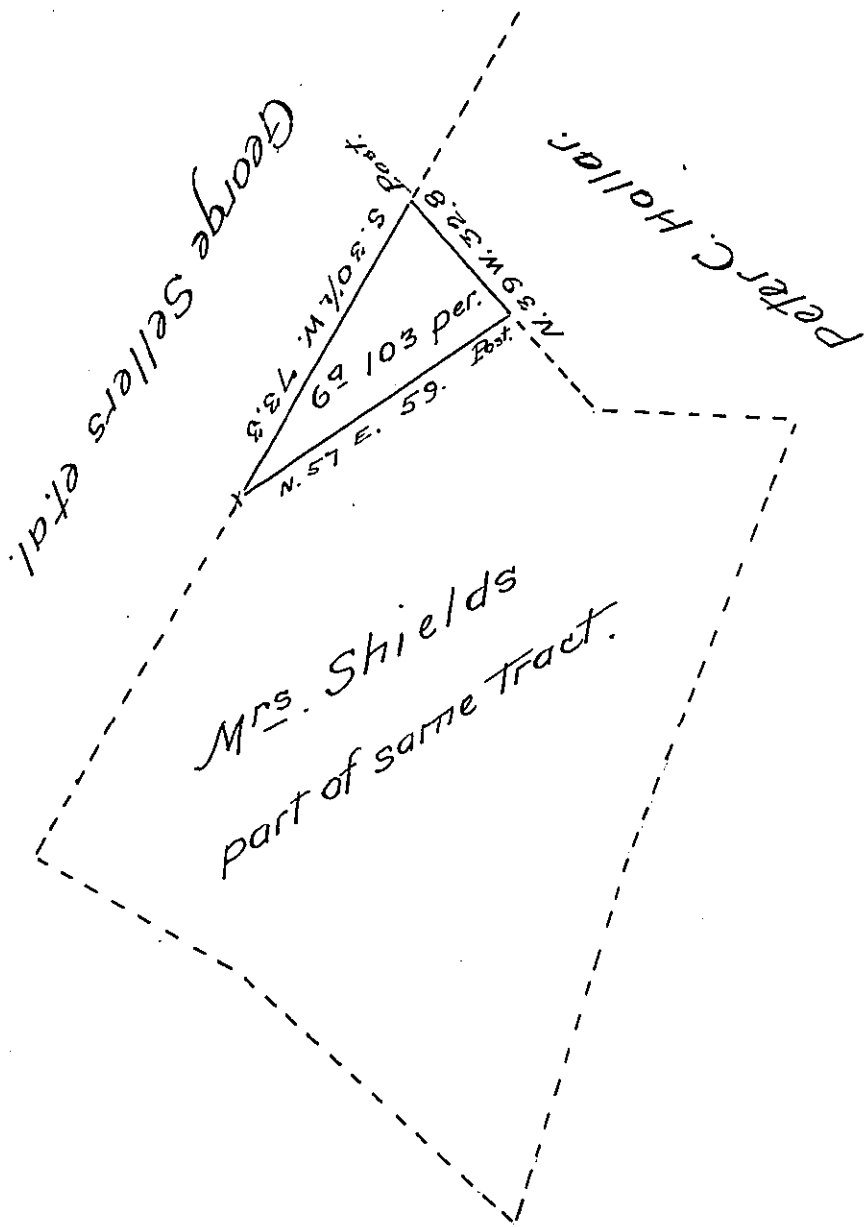 George Sellers et.al.
Peter C. Hollar.
Post.
S. 30½ W. 73.3
N. 39 W. 32.8
6a 103 per.
N. 57 E. 59.
Post.
Mrs. Shields
part of same Tract.